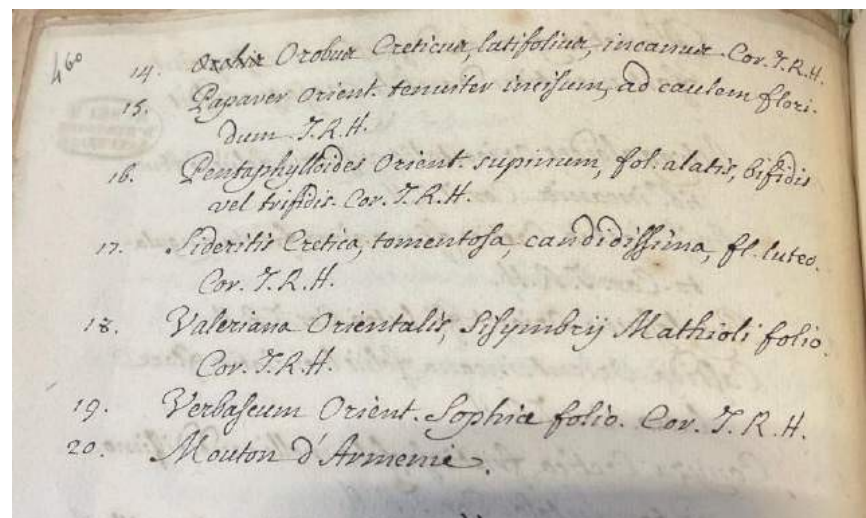 460
14. Orobus Creticus, latifolius, incanus. Cor. I.R.H.
15. Papaver Orient. tenuiter incisum, ad caulem flori-
dum. I.R.H.
16. Pentaphylloides Orient. supinum, fol. alatis, bifidis
vel trifidis. Cor. I.R.H.
17. Sideritis Cretica, tomentosa, candidissima, fl. luteo.
Cor. I.R.H.
18. Valeriana Orientalis, Sisymbrij Mathioli folio.
Cor. I.R.H.
19. Verbascum Orient. Sophiæ folio. Cor. I.R.H.
20. Mouton d'Armenie.